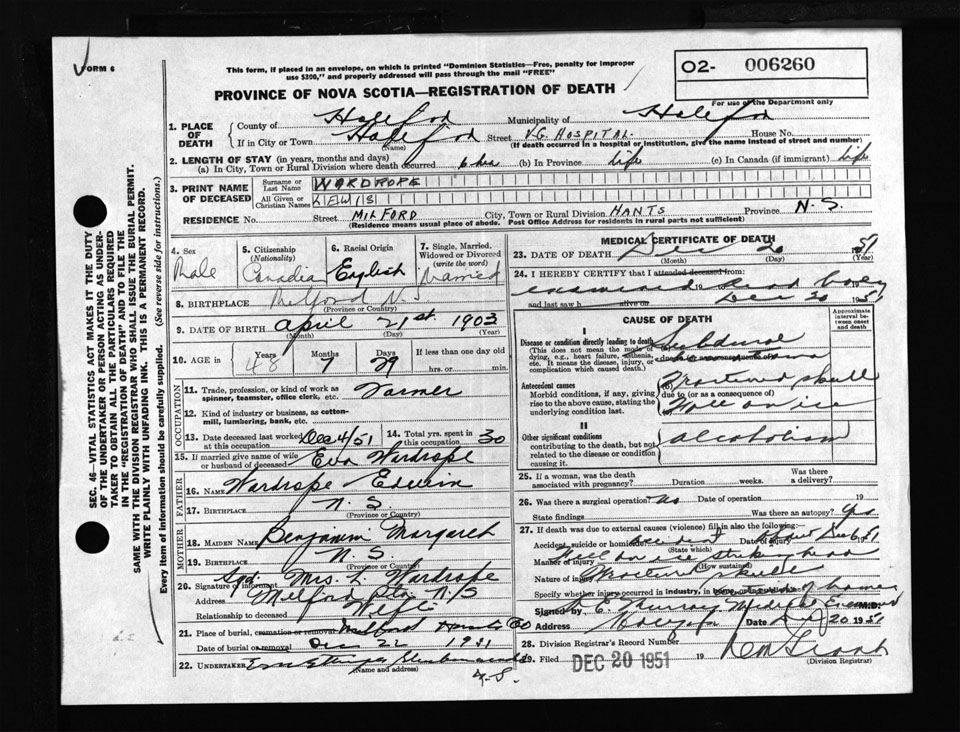 FORM 6
This form, if placed in an envelope, on which is printed "Dominion Statistics—Free, penalty for improper
use $300," and properly addressed will pass through the mail "FREE"
O2- 006260
For use of the Department only
PROVINCE OF NOVA SCOTIA—REGISTRATION OF DEATH
1. PLACE OF DEATH
County of Halifax Municipality of Halifax
If in City or Town Halifax Street V.G. HOSPITAL House No.
(Name) (If death occurred in a hospital or institution, give the name instead of street and number)
2. LENGTH OF STAY (in years, months and days)
(a) In City, Town or Rural Division where death occurred (b) In Province Life (c) In Canada (if immigrant) Life
3. PRINT NAME OF DECEASED
Surname or Last Name WARDROPE
All Given or Christian Names LEWIS
RESIDENCE No. Street MILFORD City, Town or Rural Division HANTS Province N.S.
(Residence means usual place of abode. Post Office Address for residents in rural parts not sufficient)
4. Sex Male
5. Citizenship (Nationality) Canadia
6. Racial Origin English
7. Single, Married, Widowed or Divorced (write the word) Married
8. BIRTHPLACE Milford N.S.
(Province or Country)
9. DATE OF BIRTH April 21st. 1903
(Month) (Day) (Year)
10. AGE in Years Months Days If less than one day old
48 7 29 hrs. or min.
OCCUPATION
11. Trade, profession, or kind of work as spinner, teamster, office clerk, etc. Farmer
12. Kind of industry or business, as cotton-mill, lumbering, bank, etc.
13. Date deceased last worked at this occupation Dec 4/51
14. Total yrs. spent in this occupation 30
15. If married give name of wife or husband of deceased Eva Wardrope
FATHER
16. NAME Wardrope Edwin
17. BIRTHPLACE N.S.
(Province or Country)
MOTHER
18. MAIDEN NAME Benjamin Margaret
19. BIRTHPLACE N.S.
(Province or Country)
20. Signature of informant Sgd. Mrs. L. Wardrope
Address Milford Sta N.S
Relationship to deceased Wife
21. Place of burial, cremation or removal Milford Hants CO
Date of burial or removal Dec 22 1951
22. UNDERTAKER
N.S.
MEDICAL CERTIFICATE OF DEATH
23. DATE OF DEATH Dec 20 1951
(Month) (Day) (Year)
24. I HEREBY CERTIFY that I attended deceased from:
examined dead body
and last saw h alive on Dec 20 1951
CAUSE OF DEATH
Approximate interval between onset and death
I
Disease or condition directly leading to death
(This does not mean the mode of dying, e.g., heart failure, asthenia, etc. It means the disease, injury, or complication which caused death.)
Subdural
Antecedent causes
Morbid conditions, if any, giving rise to the above cause, stating the underlying condition last.
Fractured skull
due to (or as a consequence of)
Fall on ice
II
Other significant conditions
contributing to the death, but not related to the disease or condition causing it.
alcoholism
25. If a woman, was the death associated with pregnancy? Duration weeks. Was there a delivery?
26. Was there a surgical operation? No Date of operation 19
State findings Was there an autopsy? Yes
27. If death was due to external causes (violence) fill in also the following:—
Accident, suicide or homicide? Accident Date of injury Dec 6 1951
(State which)
Manner of injury Fell on ice striking head
(How sustained)
Nature of injury Fractured skull
Specify whether injured in industry, in home, or in public place
Signed by Medical Examiner M.D.
Address Halifax Date 20 1951
28. Division Registrar's Record Number
29. Filed DEC 20 1951 19
(Division Registrar)
SEC. 46—VITAL STATISTICS ACT MAKES IT THE DUTY
OF THE UNDERTAKER OR PERSON ACTING AS UNDER-
TAKER TO OBTAIN ALL THE PARTICULARS REQUIRED
IN THE "REGISTRATION OF DEATH" AND TO FILE THE
SAME WITH THE DIVISION REGISTRAR WHO SHALL ISSUE THE BURIAL PERMIT.
WRITE PLAINLY WITH UNFADING INK. THIS IS A PERMANENT RECORD.
Every item of information should be carefully supplied. (See reverse side for instructions.)